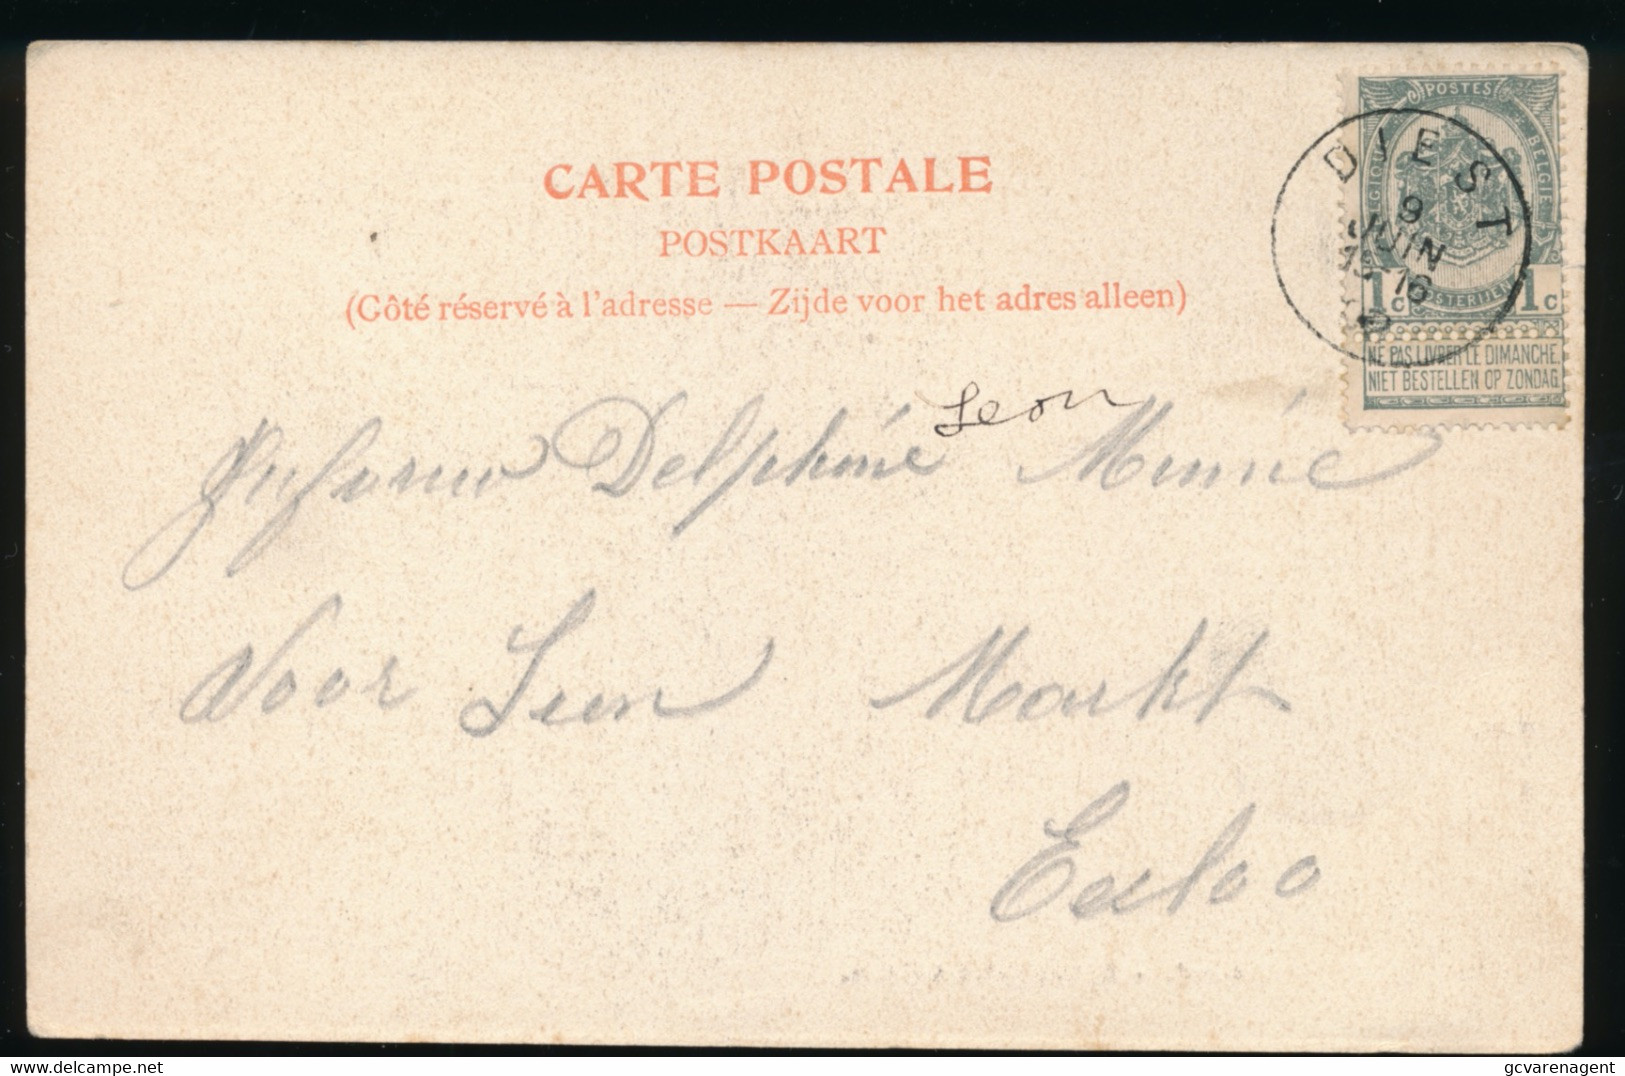 CARTE POSTALE
POSTKAART
(Côté réservé à l'adresse — Zijde voor het adres alleen)
POSTES
BELGIE
1c 1c
NE PAS LIVRER LE DIMANCHE.
NIET BESTELLEN OP ZONDAG
DIEST
9
JUIN
15-16
Leon
Delphine Minnie
Voor Leen Markt
Eecloo
gcvarenagent